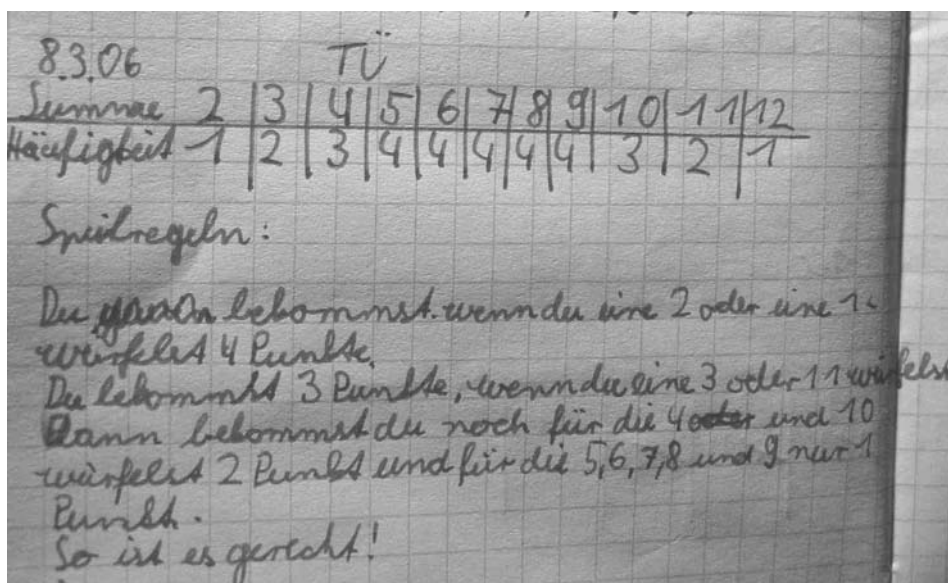 8.3.06 TÜ
Summe 2 3 4 5 6 7 8 9 10 11 12
Häufigkeit 1 2 3 4 4 4 4 4 3 2 1
Spielregeln:
Du bekommst wenn du eine 2 oder eine
würfelst 4 Punkte.
Du bekommst 3 Punkte, wenn du eine 3 oder 11 würfelst
Dann bekommst du noch für die 4 und 10
würfelst 2 Punkt und für die 5, 6, 7, 8 und 9 nur 1
Punkt.
So ist es gerecht!